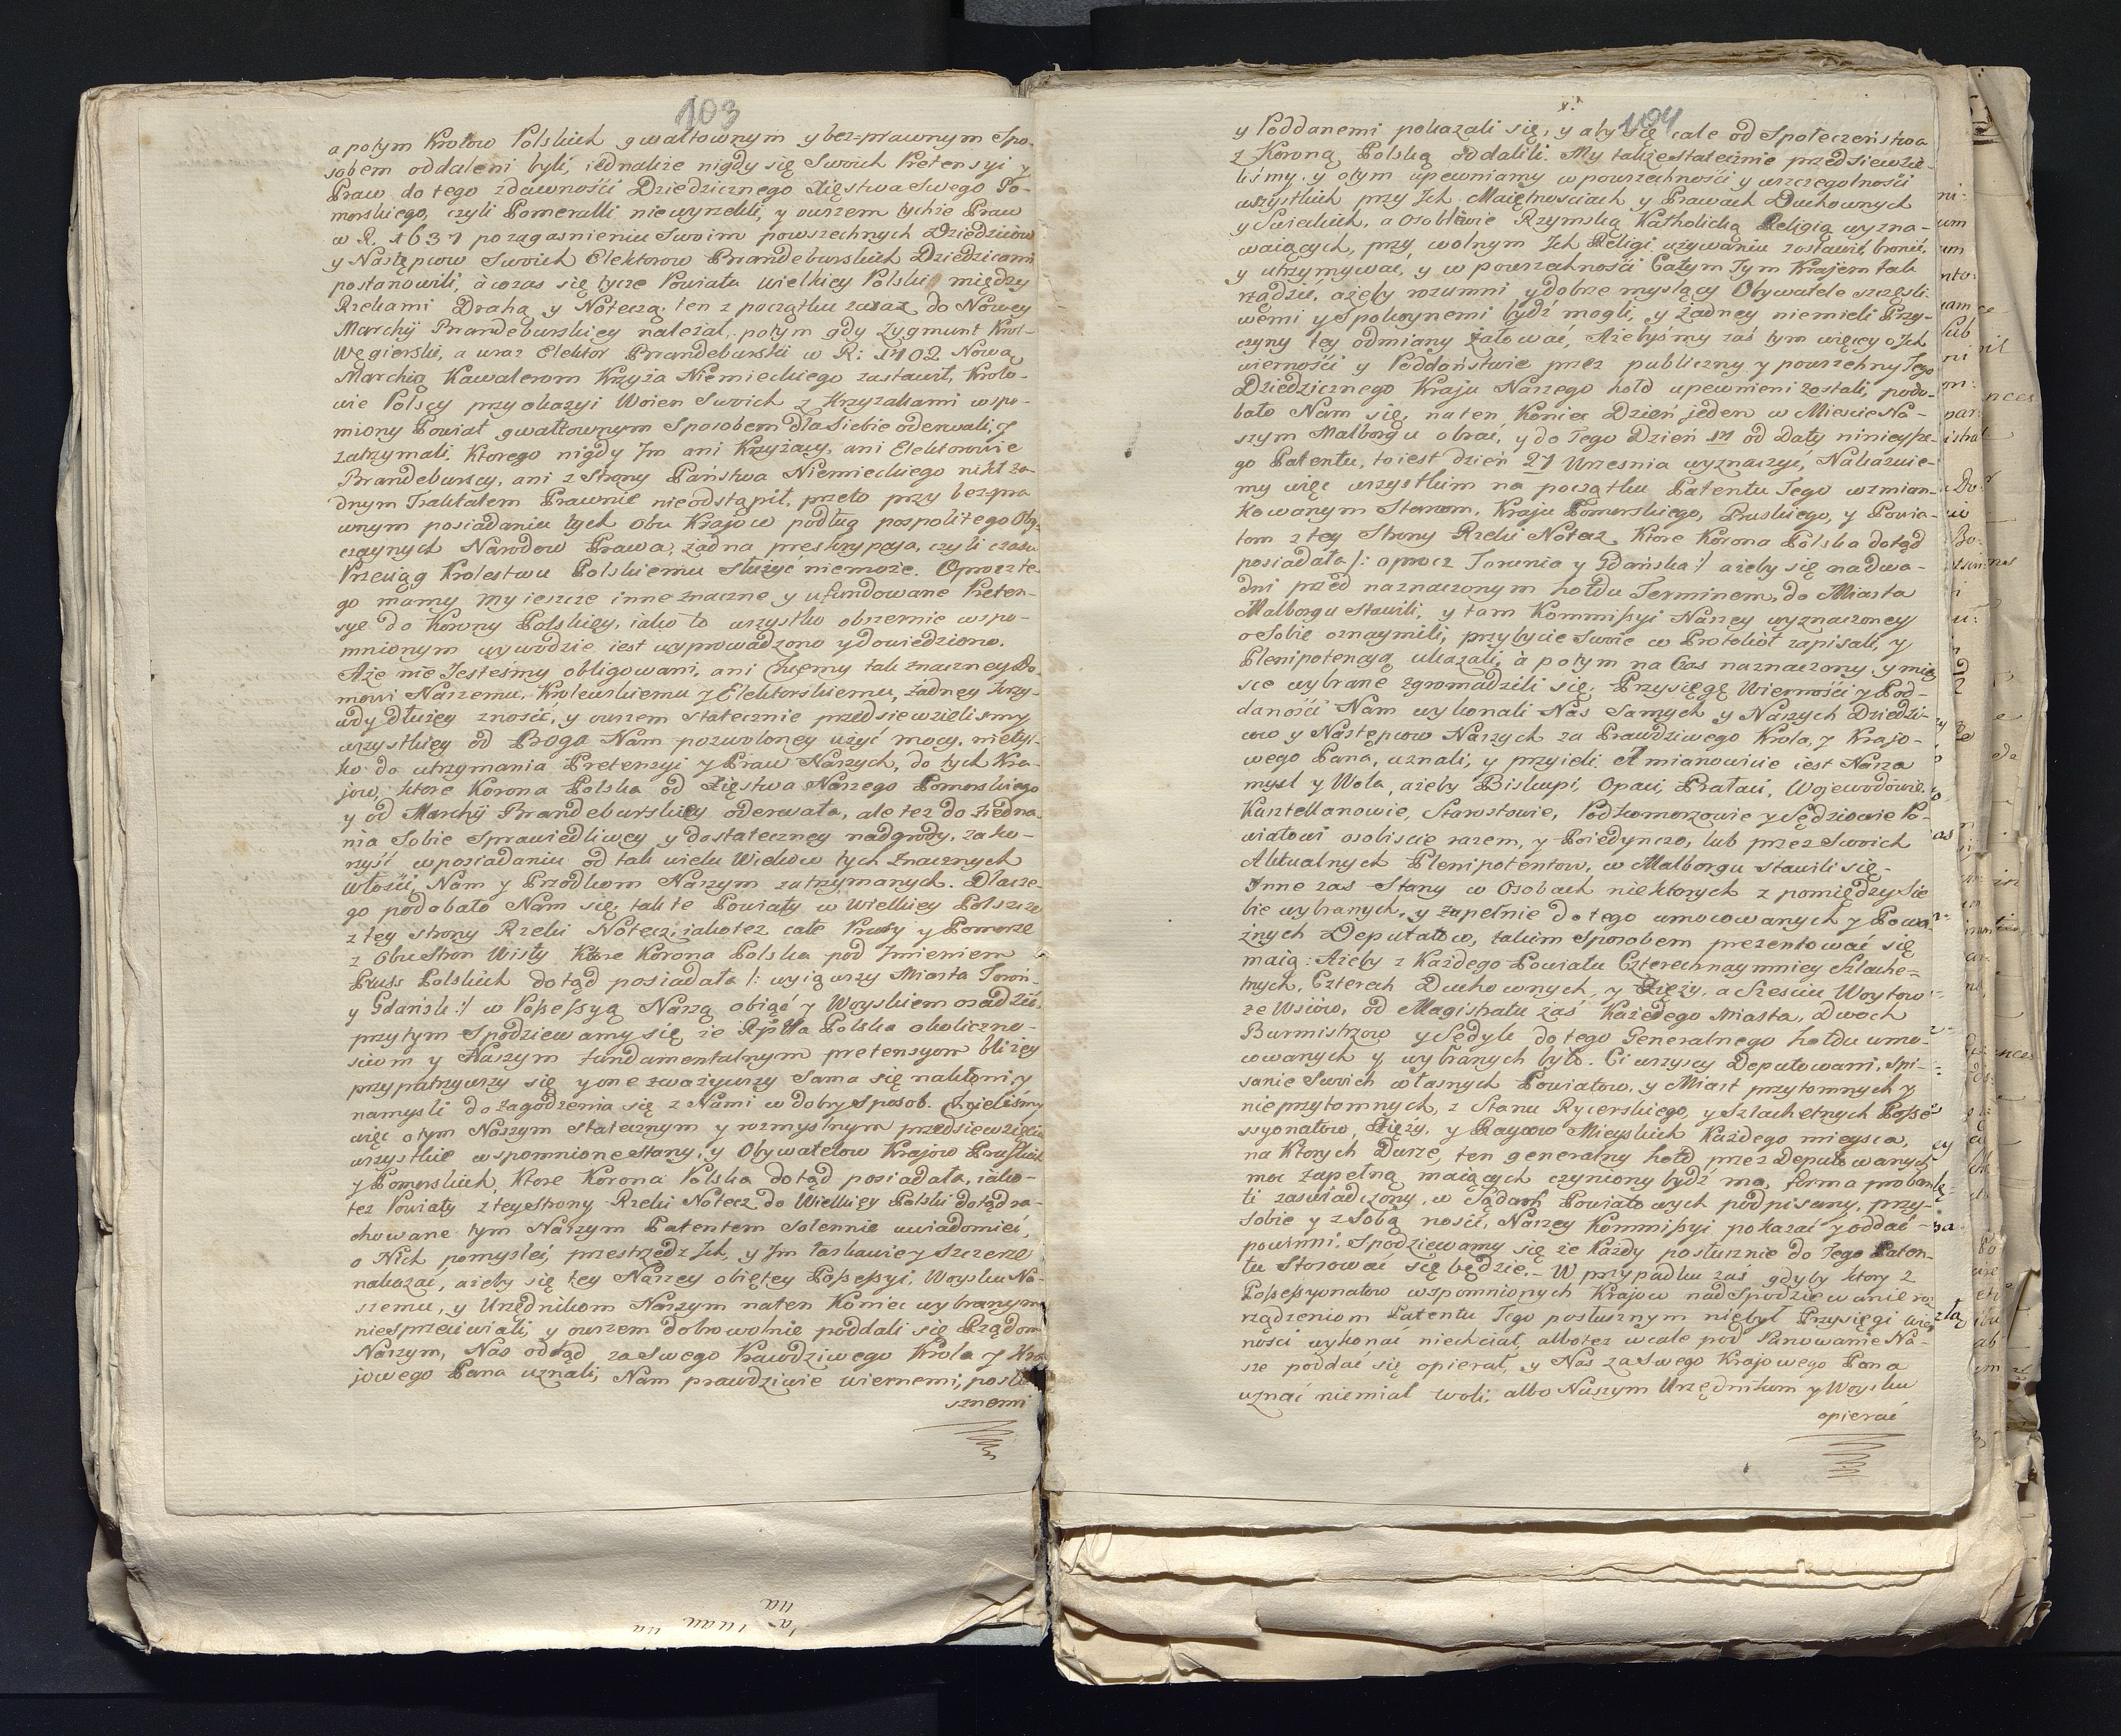 103
a potym Krolow Polskich gwałtownym y bez-prawnym Spo-
sobem oddaleni byli, iednakże nigdy się Swoich Pretensyi y
Praw do tego zdawności Dziedzicznego Xięstwa Swego Po-
morskiego, czyli Pomeralli niewyrzekli, y owszem tychże Praw
w R. 1637 po zagasnieniu Swoim powszechnych Dziedzicow
y Następcow Swoich Elektorow Brandeburskich Dziedzicami
postanowili, à czas się tycze Powiatu wielkiey Polski między
Rzekami Drahą y Notecą, ten z początku zaraz do Nowey
Marchij Brandeburskiey należał, potym gdy Zygmunt Krol-
Węgierski, a wraz Elektor Brandeburski w R: 1402 Nową
Marchią Kawalerom Krzyża Niemieckiego zastawił, Krolo-
wie Polscy przy okazyi Woien Swoich z Krzyżakami wspo-
miony Powiat gwałtownym Sposobem dla Siebie oderwali, y
zatrzymali, Ktorego nigdy Im ani Krzyżacy, ani Elektorowie
Brandeburscy, ani z Strony Państwa Niemieckiego nikt ża-
dnym Traktatem Prawnie nieodstąpił, przeto przy bezpra
wnym posiadaniu tych obu Krajow podług pospolitego Oby-
czaynych Narodow Prawa, żadna preskrypcya, czyli czasu
Przeciąg Krolestwu Polskiemu służyć niemoże. Oprocz te-
go mamy my ieszcze inne znaczne y ufundowane Preten-
sye do Korony Polskiey, iako to wszystko obszernie wspo-
mnionym wywodzie iest wyprowadzono y dowiedziono.
Aże nie Jesteśmy obligowani, ani Chcemy tak znaczney Do-
mowi Naszemu, Krolewskiemu y Elektorskiemu, żadney krzy-
wdy dłużey znosić, y owszem statecznie przedsiewzielismy
wszystkiey od Boga Nam pozwoloney użyć mocy, nietyl-
ko do utrzymania Pretensyi y Praw Naszych, do tych Kra-
jow, ktore Korona Polska od Xięstwa Naszego Pomorskiego
y od Marchij Brandeburskiey oderwała, ale też do ziedna-
nia Sobie Sprawiedliwey y dostateczney nadgrody, za ko-
rzyść w posiadaniu od tak wielu Wiekow tych znacznych
włości, Nam y Przodkom Naszym zatrzymanych. Dlacze-
go podobało Nam się, tak te Powiaty w Wielkiey Polszcze
z tey strony Rzeki Notecz, iakoteż całe Prusy y Pomorze
z Obu Stron Wisły Ktore Korona Polska pod Imieniem
Pruss Polskich dotąd posiadała /: wyiąwszy Miasta Toruń-
y Gdańsk :/ w Possessyą Naszą obiąć y Woyskiem osadzić,
przytym Spodziewamy się że Rptta Polska okoliczno-
sciom y Naszym fundamentalnym pretensyom bliżey
przypatrzywszy się y one zważywszy Sama się nakłoni, y
namysli do zagodzenia się z Nami w dobry Sposob. Chcieliśmy
więc o tym Naszym statecznym y rozmyslnym przedsiewzięciu
wszystkie wspomnione stany, y Obywatelow Krajow Pruskich
y Pomorskich, Ktore Korona Polska dotąd posiadała, iako-
też Powiaty z tey Strony Rzeki Notecz do Wielkiey Polski dotąd ra-
chowane tym Naszym Patentem Solennie uwiadomieć,
o Nich pomysleć, przestrzedz Ich, y Im łaskawie y szczerze
nakazać, ażeby się tey Naszey obiętey Possessyi, Woysku Na-
szemu, y Urzędnikom Naszym naten Koniec wybranym
niesprzeciwiali, y owszem dobrowolnie poddali się Rządom
Naszym, Nas odtąd za Swego Prawdziwego Krola y Kra
jowego Pana uznali, Nam prawdziwie wiernemi, poslu
sznemi
104
y Poddanemi pokazali się, y aby się cale od Społeczeństwa
z Koroną Polską oddalili. My także statecznie przedsiewzie-
lismy, y otym upewniamy w powszechności y wszczegolności
wszystkich przy Ich Maiętnościach y Prawach Duchownych
y Swieckich, a osobliwie Rzymską Katholicką Religią wyzna-
waiących, przy wolnym Ich Religi używaniu zostawić, bronić,
y utrzymywać, y w powszechności Całym Tym Krajem tak
rządzić, ażeby rozumni y dobrze myslący Obywatele szczęśli-
wemi y Spokoynemi bydź mogli, y żadney niemieli Przy-
czyny tey odmiany żałować, Ażebyśmy zaś tym więcey o Ich
wierności y Poddaństwie przez publiczny y powszechny Tego
Dziedzicznego Kraju Naszego hołd upewnieni zostali, podo-
bało Nam się, naten Koniec Dzień jeden w Miescie Na-
szym Malborgu obrać, y do Tego Dzień 14 od Daty ninieysze-
go Patentu, toiest dzień 27 Wrzesnia wyznaczyć, Nakazuie-
my więc wszystkim na początku Patentu Tego wzmian-
kowanym Stanom, Kraju Pomorskiego, Pruskiego, y Powia-
tom z tey Strony Rzeki Notecz, Ktore Korona Polska dotąd
posiadała /: oprocz Torunia y Gdańska :/ ażeby się na dwa-
dni przed naznaczonym hołdu Terminem, do Miasta
Malborgu stawili, y tam Kommissyi Naszey wyznaczoney
o Sobie oznaymili, przybycie Swoie w Protokół zapisali, y
Plenipotencyą ukazali, à potym na Czas naznaczony, y miey
sce wybrane zgromadzili się, Przysięgę Wierności y Pod-
daności Nam wykonali Nas Samych y Naszych Dziedzi-
cow y Następcow Naszych za Prawdziwego Krola, y Krajo-
wego Pana, uznali, y przyieli. A mianowicie iest Nasza
mysl y Wola, ażeby Biskupi, Opaci, Prałaci, Wojewodowie,
Kasztellanowie, Starostowie, Podkomorzowie y Sędziowie Po-
wiatowi osobiscie razem, y Poiedynczo, lub przez Swoich
Aktualnych Plenipotentow, w Malborgu stawili się-
Inne zas Stany w Osobach niektorych z pomiędzy Sie
bie wybranych, y zapełnie do tego umocowanych y Powa-
żnych Deputatow, takim Sposobem prezentować się
maią: Ażeby z Każdego Powiatu Czterech naymniey Szlache=
tnych, Czterech Duchownych, y Xięży, a Szesciu Woytow
ze Wsiow, od Magistratu zaś Każdego Miasta, dwoch
Burmistrzow y Sędyk do tego Generalnego hołdu umo-
cowanych y wybranych było. Ci wszyscy Deputowani, Spi-
sanie Swoich własnych Powiatow, y Miast przytomnych y
nieprzytomnych, z Stanu Rycerskiego, y Szlachetnych Posse
ssyonatow, Xięży, y Raycow Mieyskich Każdego mieysca,
na Ktorych Dusze, ten generalny hołd przez Deputowanych
moc zapełną maiących czyniony bydź ma, forma proban
ti zaswiadczony, w Sądach Powiatowych podpisany, przy-
sobie y z Sobą nosić, Naszey Kommissyi pokazać y oddać-
powinni. Spodziewamy się że Każdy posłusznie do Tego Paten-
tu Stosować się będzie.- W przypadku zaś, gdyby ktory z
Possessyonatow wspomnionych Krajow nad Spodziewanie roz
rządzeniom Patentu Tego posłusznym niebył Przysięgi Wier
ności wykonać niechciał, albo też wcale pod Panowanie Na-
sze poddać się opierał, y Nas za Swego Krajowego Pana
uznać niemiał woli, albo Naszym Urzędnikom y Woysku
opierać